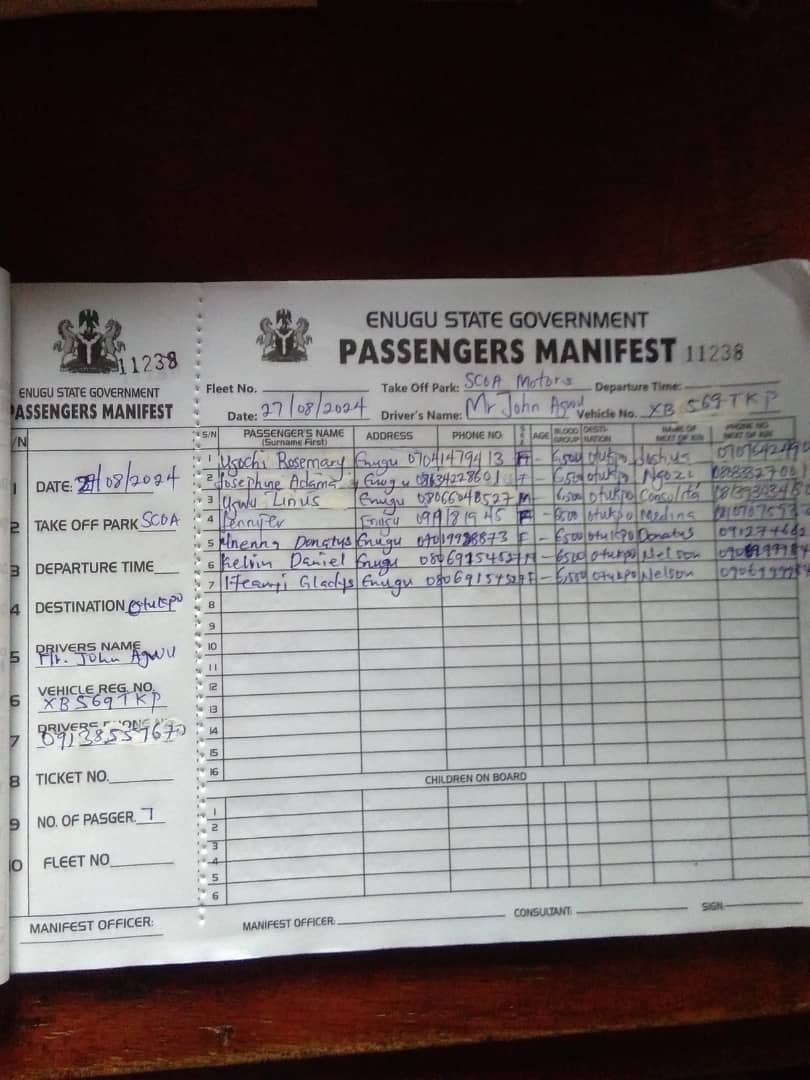 11238
ENUGU STATE GOVERNMENT
PASSENGERS MANIFEST
/N
1 DATE: 27/08/2024
2 TAKE OFF PARK SCOA
3 DEPARTURE TIME
4 DESTINATION Otukpo
5 DRIVERS NAME
Mr. John Agwu
6 VEHICLE REG. NO.
XB569TKP
7
8 TICKET NO.
9 NO. OF PASGER. 7
10 FLEET NO
MANIFEST OFFICER:
ENUGU STATE GOVERNMENT
PASSENGERS MANIFEST 11238
Fleet No. Take Off Park: SCOA Motors Departure Time:
Date: 27/08/2024 Driver's Name: Mr John Agwu Vehicle No. XB 569TKP
S/N PASSENGER'S NAME (Surname First) ADDRESS PHONE NO. SEX AGE BLOOD GROUP DESTI-NATION NAME OF NEXT OF KIN PHONE NO. NEXT OF KIN
1 Rosemary Enugu 07041479413 F - 6500 otukpo Joshua
2 Josephine Adama Enugu 08634228601 F - 6500 otukpo Ngozi
3 Ugwu Linus Enugu 08066048527 M - 6500 otukpo
4 Jennifer Enugu F - 6500 otukpo
5 Donatus Enugu F - 6500 otukpo Donatus
6 Kelvin Daniel Enugu - 6500 otukpo Nelson
7 Gladys Enugu F - 6500 otukpo Nelson
8
9
10
11
12
13
14
15
16
CHILDREN ON BOARD
1
2
3
4
5
6
MANIFEST OFFICER: CONSULTANT: SIGN: